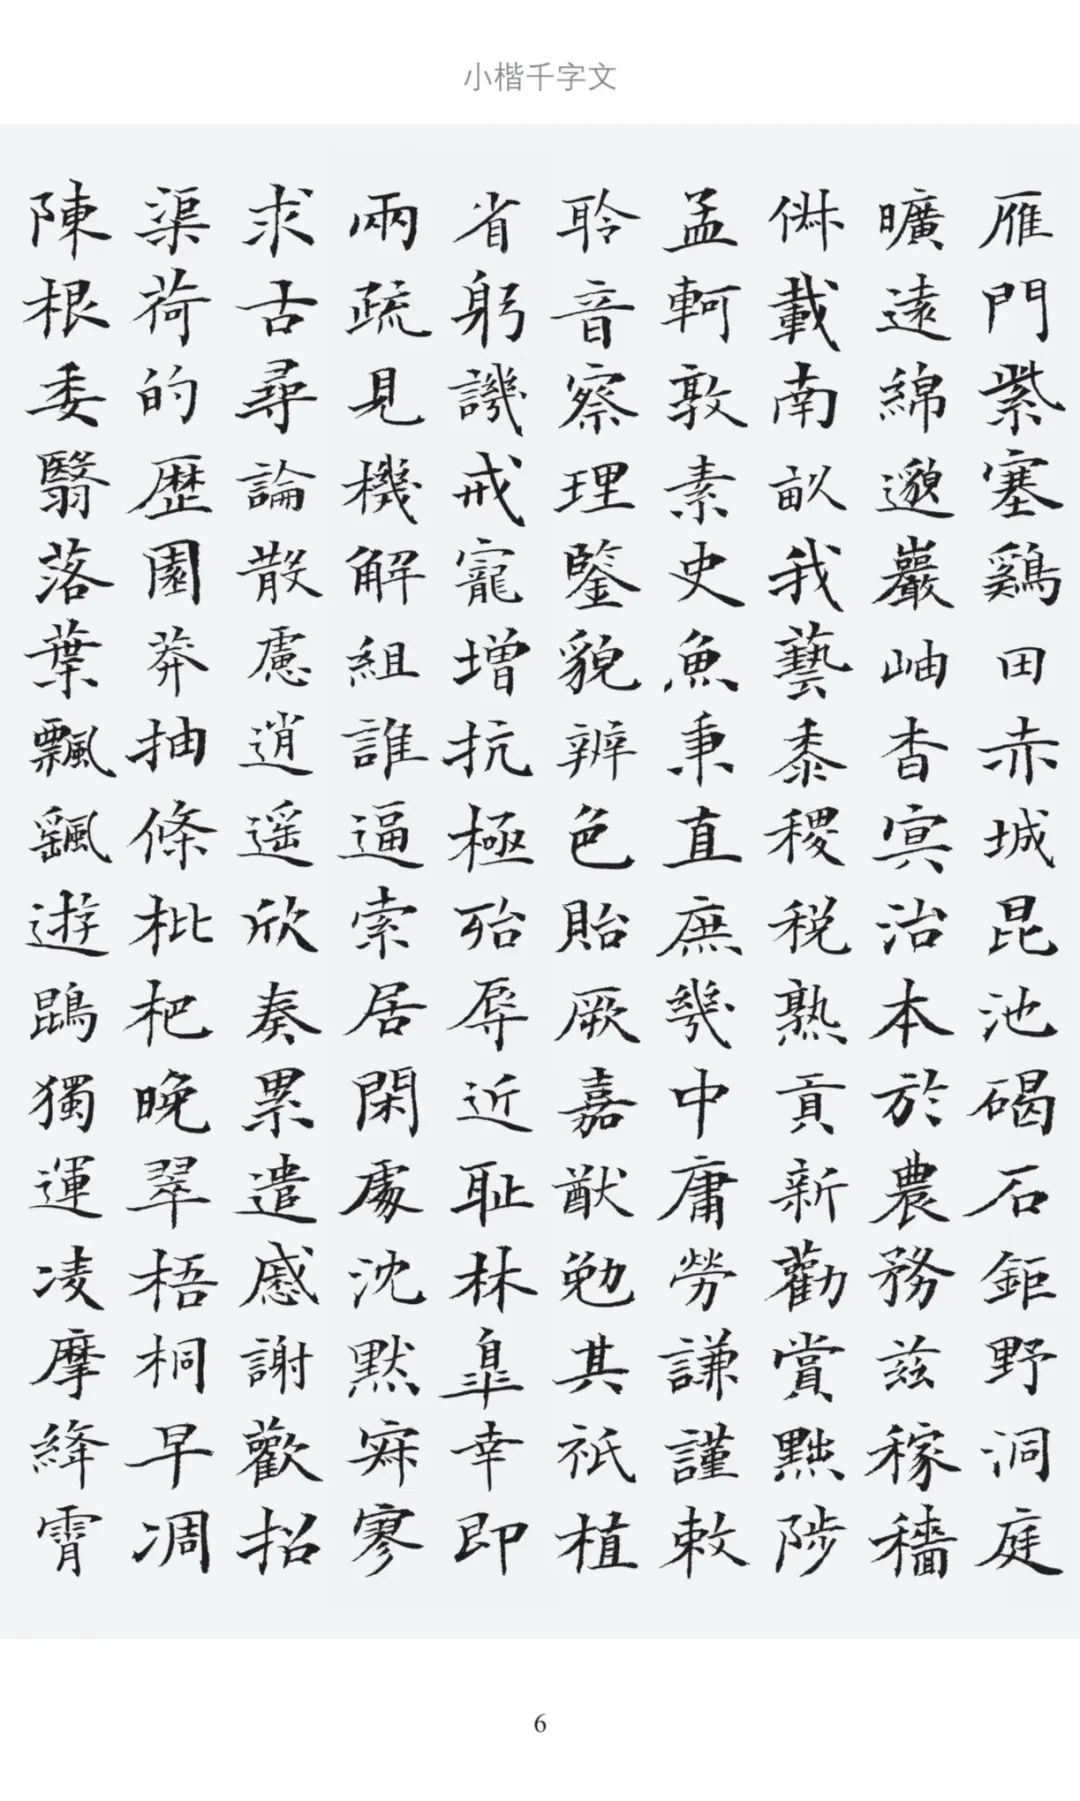 小楷千字文
雁門紫塞鷄田赤城昆池碣石鉅野洞庭
曠遠綿邈巖岫杳冥治本於農務茲稼穡
俶載南畝我藝黍稷税熟貢新勸賞黜陟
孟軻敦素史魚秉直庶幾中庸勞謙謹敕
聆音察理鑒貌辨色貽厥嘉猷勉其祇植
省躬譏戒寵增抗極殆辱近耻林皋幸即
兩疏見機解組誰逼索居閑處沈默寂寥
求古尋論散慮逍遥欣奏累遣慼謝歡招
渠荷的歷園莽抽條枇杷晚翠梧桐早凋
陳根委翳落葉飄飖遊鵾獨運凌摩絳霄
6